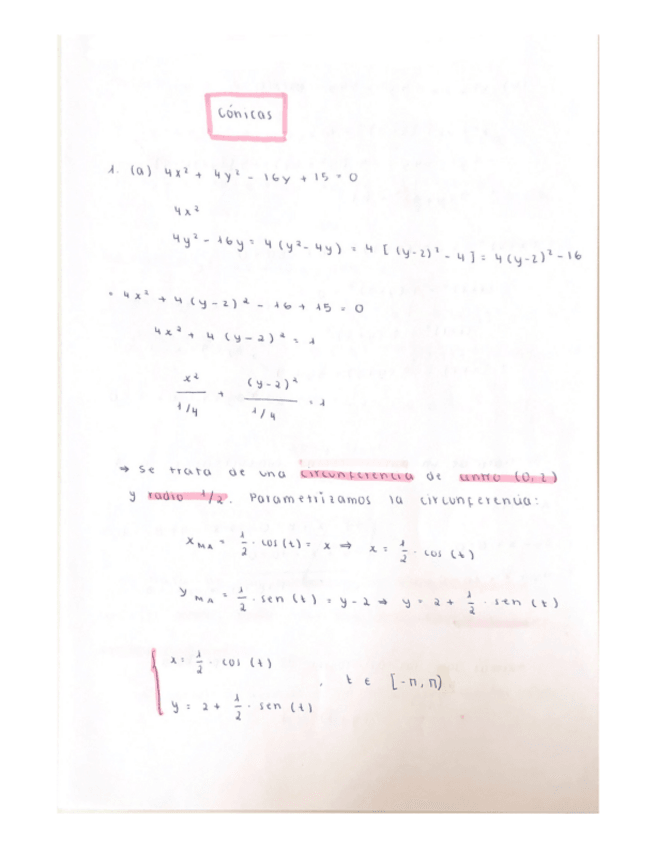 Cónicas
1. (a) 4x² + 4y² - 16y + 15 = 0
4x²
4y² - 16y = 4 (y² - 4y) = 4 [ (y-2)² - 4 ] = 4(y-2)² - 16
= 4x² + 4(y-2)² - 16 + 15 = 0
4x² + 4 (y-2)² = 1
x²/1/4 + (y-2)²/1/4 = 1
→ Se trata de una circunferencia de centro (0,2)
y radio 1/2. Parametrizamos la circunferencia:
x_MA = 1/2 · cos(t) = x ⇒ x = 1/2 · cos(t)
y_MA = 1/2 · sen(t) = y-2 ⇒ y = 2 + 1/2 · sen(t)
x = 1/2 · cos(t)
, t ∈ [-π, π)
y = 2 + 1/2 · sen(t)